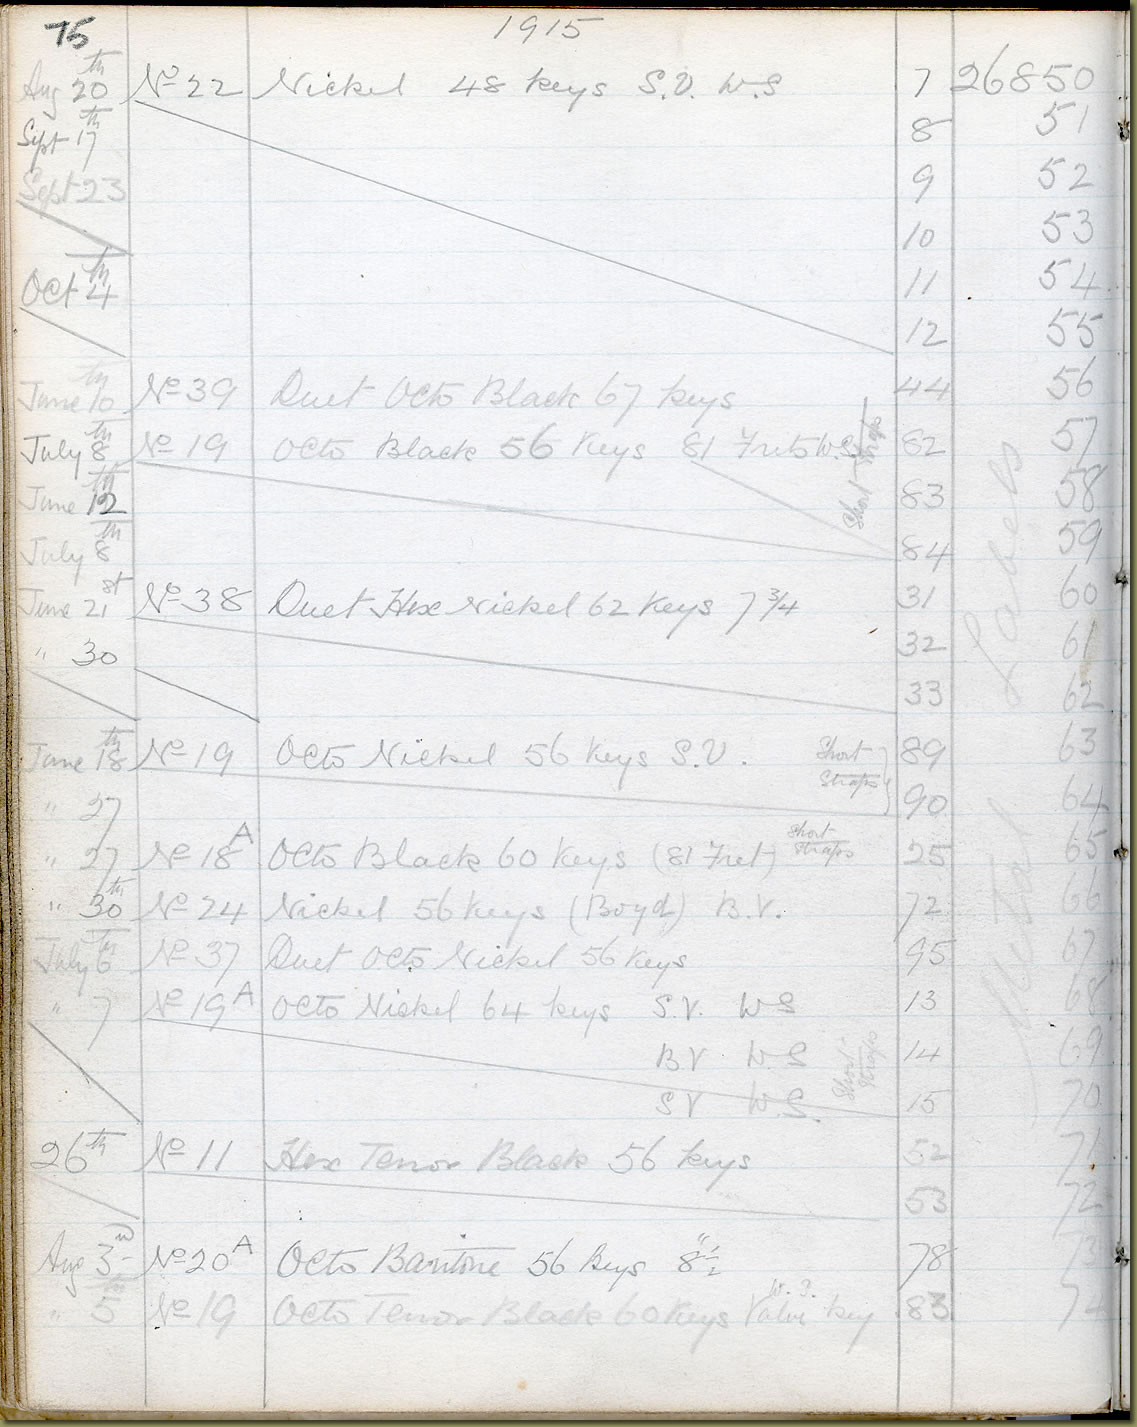 75 1915
Aug 20th No 22 Nickel 48 keys S.V. W.S 7 26850
Sept 17th 8 51
Sept 23 9 52
10 53
Oct 4th 11 54
12 55
June 10th No 39 Duet Octo Black 67 keys 44 56
July 8th No 19 Octo Black 56 Keys 81 Frets W.S. Short Straps 82 57
June 12th 83 58
July 8th 84 59
June 21st No 38 Duet Hex Nickel 62 Keys 7 3/4 31 60
" 30 32 61
33 62
June 18th No 19 Octo Nickel 56 Keys S.V. Short Straps 89 63
" 27 90 64
" 27 No 18A Octo Black 60 Keys (81 Fret) Short Straps 25 65
" 30th No 24 Nickel 56 Keys (Boyd) B.V. 72 66
July 6th No 37 Duet Octo Nickel 56 Keys 95 67
" 7 No 19A Octo Nickel 64 keys S.V. W S 13 68
B V. W. S Short Straps 14 69
S V W. S. 15 70
26th No 11 Hex Tenor Black 56 keys 52 71
53 72
Aug 3rd No 20A Octo Baritone 56 Keys 8 1/2" 78 73
" 5th No 19 Octo Tenor Black 60 Keys Valve key 83 74
Metal Labels